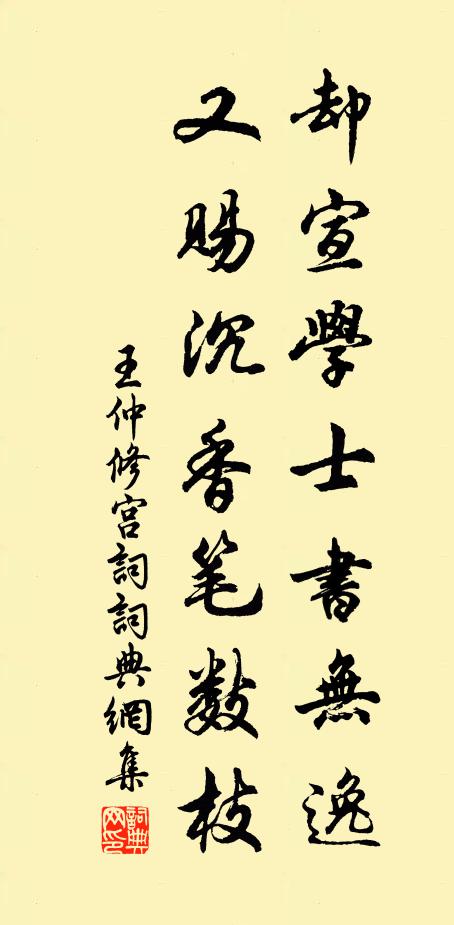 却宣學士書無逸
又賜沉香笔數枝
王仲修宫詞詞典網集
詞典网印